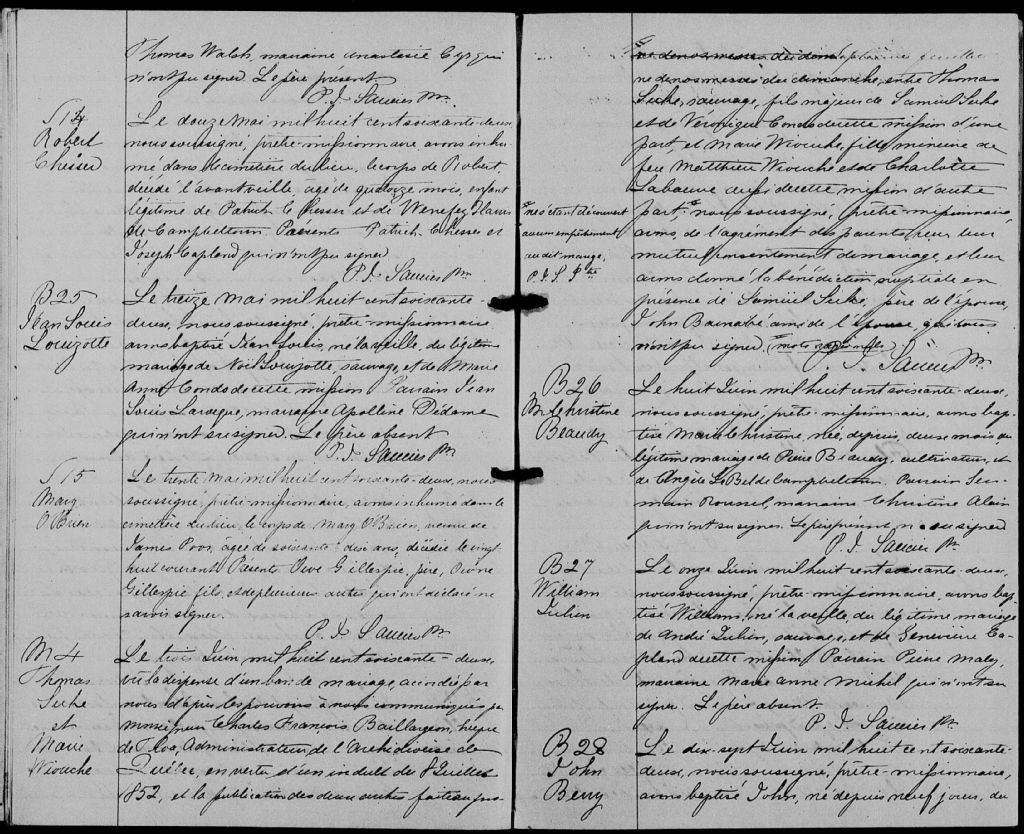 Thomas Walsh, marraine Anastasie
n'ont pu signer. Le père présent.
P. J. Saucier Ptr.
S 14
Robert
Chesser
Le douze Mai mil huit cent soixante-deux
nous soussigné, prêtre-missionnaire avons inhu-
mé dans le cimetière du lieu, le corps de Robert,
décédé l'avant veille, âgé de quatorze mois, enfant
légitime de Patrick Chesser et de
de Campbelltown Présents Patrick Chesser et
Joseph Capland qui n'ont pu signer
P. J. Saucier Ptr.
B 25
Jean Louis
Louizotte
Le treize Mai mil huit cent soixante-
deux, nous soussigné, prêtre-missionnaire
avons baptisé Jean Louis, né la veille, du légitime
mariage de Noël Louizotte, sauvage, et de Marie
Anne Condo de cette mission Parrain Jean
Louis Lavegue, marraine Apolline Dédame
qui n'ont su signer. Le père absent
P. J. Saucier Ptr.
S 15
Mary
O'Brien
Le trente Mai mil huit cent soixante-deux, nous
soussigné, prêtre-missionnaire, avons inhumé dans le
cimetière du lieu, le corps de Mary O'Brien, veuve de
James Poor, âgée de soixante-dix ans, décédée le vingt
huit courant. Présents Gillespie, père,
Gillespie fils, et de plusieurs autres qui ont déclaré ne
savoir signer.
P. J. Saucier Ptr.
M 4
Thomas
Suke
et
Marie
Wiouche
Le trois Juin mil huit cent soixante-deux,
vu la dispense d'un ban de mariage, accordée par
nous d'après les pouvoirs à nous communiqués par
monseigneur Charles François Baillargeon, évêque
de Tloa, Administrateur de l'Archidiocèse de
Québec, en vertu d'un indult du 8 Juillet
1852, et la publication des deux autres faite au prô-
ne de nos messes
ne de nos messes du dimanche, entre Thomas
Suke, sauvage, fils majeur de Samuel Suke
et de Véronique Condo de cette mission d'une
part et Marie Wiouche, fille mineure de
feu Matthieu Wiouche et de Charlotte
Labauve aussi de cette mission d'autre
part. nous soussigné, prêtre-missionnaire,
avons, de l'agrément des parents, reçu leur
mutuel consentement de mariage, et leur
avons donné la bénédiction nuptiale en
présence de Samuel Suke, père de l'époux,
John Barnabé ami de l'épouse, qui tous
n'ont pu signer.
P. J. Saucier Ptr.
ne s'étant découvert
aucun empêchement
au dit mariage,
P. J. S. Ptr
B 26
M. Christine
Beaudy
Le huit Juin mil huit cent soixante-deux,
nous soussigné, prêtre-missionnaire, avons bap-
tisé Marie Christine, née, depuis, deux mois du
légitime mariage de Pierre Beaudy, cultivateur, et
de Angèle LeBel de Campbelltown. Parrain Ger-
main Roussel, marraine Christine Alain
qui n'ont su signer. Le père présent, n'a su signer
P. J. Saucier Ptr.
B 27
William
Julien
Le onze Juin mil huit cent soixante-deux,
nous soussigné, prêtre-missionnaire, avons bap-
tisé William, né la veille, du légitime mariage
de André Julien, sauvage, et de Geneviève Ca-
pland de cette mission. Parrain Pierre Maley,
marraine Marie Anne Michel qui n'ont su
signer. Le père absent.
P. J. Saucier Ptr.
B 28
John
Berry
Le dix-sept Juin mil huit cent soixante-
deux, nous soussigné, prêtre-missionnaire,
avons baptisé John, né depuis neuf jours, du